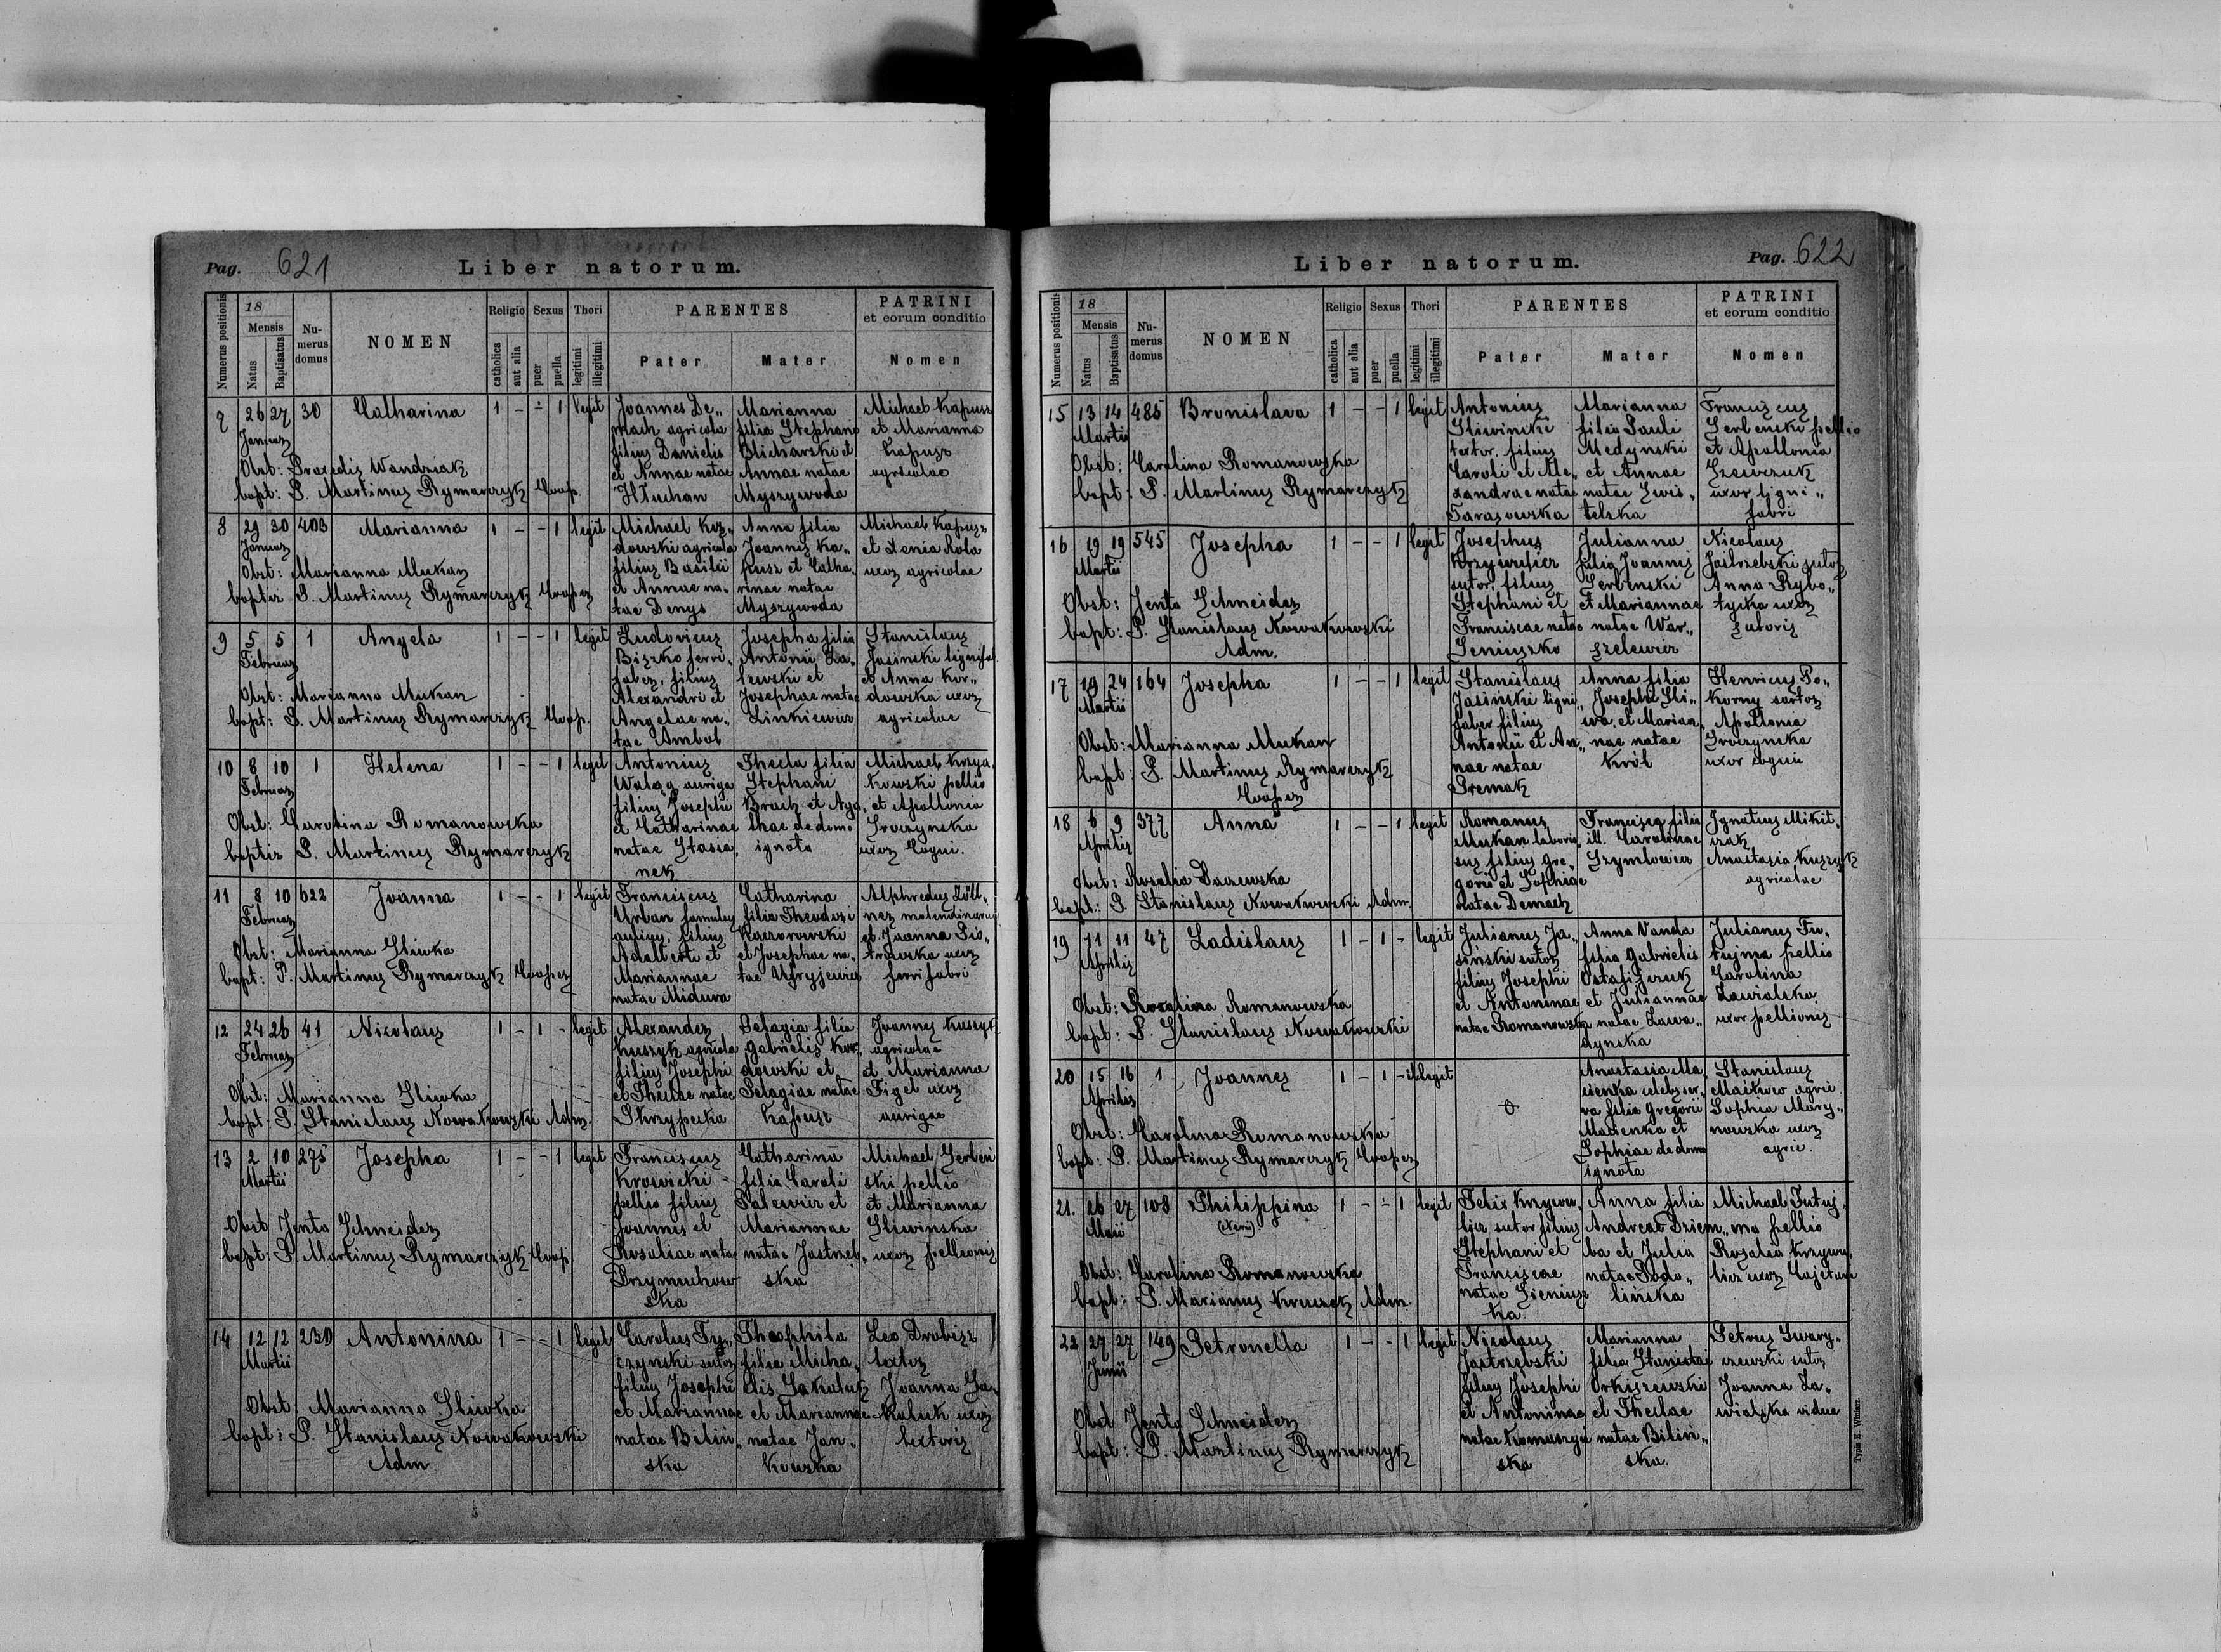 Pag. 621
Liber natorum.
Numerus positionis
18
Mensis
Natus
Baptisatus
Nu-
merus
domus
NOMEN
Religio
catholica
aut alia
Sexus
puer
puella
Thori
legitimi
illegitimi
PARENTES
Pater
Mater
PATRINI
et eorum conditio
Nomen
7 26 27 30 Catharina 1 - - 1 legit
Januar
Obst: Praxedis Wandziak
bapt: P. Martinus Rymarczyk Coop.
Joannes De„
mach agricola
filius Danielis
et Annae natae
Hluchan
Marianna
filia Stephani
Blicharski et
Annae natae
Myszywoda
Michael Kapusz
et Marianna
Kapusz
agricolae
8 29 30 403 Marianna 1 - - 1 legit
Januar
Obst: Marianna Mukan
baptiz P. Martinus Rymarczyk Cooper
Michael Koz„
dowski agricola
filius Basilii
et Annae na„
tae Denys
Anna filia
Joannis Ka„
pusz et Catha„
rinae natae
Myszywoda
Michael Kapusz
et Xenia Rola
uxor agricolae
9 5 5 1 Angela 1 - - 1 legit
Februar
Obst: Marianna Mukan
bapt: P. Martinus Rymarczyk Coop.
Ludovicus
Biszko ferri„
faber, filius
Alexandri et
Angelae na„
tae Ambol
Josepha filia
Antonii
Josephae natae
Linkiewicz
Stanislaus
Jasinski lignifab.
et Anna Kor„
dowska uxor
agricolae
10 8 10 1 Helena 1 - - 1 legit
Februar
Obst: Carolina Romanowska
baptiz P. Martinus Rymarczyk
Antonius
auriga
filius Josephi
et Catharinae
natae Stasia„
nek
Thecla filia
Stephani
Brach et Aga„
thae de domo
ignota
Michael Krzyż„
kowski pellio
et Apollonia
Iroczynska
uxor cogni.
11 8 10 622 Joanna 1 - - 1 legit
Februar
Obst: Marianna Sliwka
bapt: P. Martinus Rymarczyk Cooper
Franciscus
Urban famulus
filius
Adalberti et
Mariannae
natae Midura
Catharina
filia Theodori
Kaczorowski
et Josephae na„
tae
Alphredus Zöll„
ner molendinarius
et Joanna Pio„
trowska uxor
ferrifabri
12 24 26 41 Nicolaus 1 - 1 - legit
Februar
Obst: Marianna Sliwka
bapt: P. Stanislaus Nowakowski Adm.
Alexander
Kuszyk agricola
filius Josephi
et Theclae natae
Skrypecka
Pelagia filia
Gabrielis Koz„
dowski et
Pelagiae natae
Kapusz
Joannes Kuszyk
agricolae
et Marianna
Figel uxor
aurigae
13 2 10 275 Josepha 1 - - 1 legit
Martii
Obst Jenta Schneider
bapt: P. Martinus Rymarczyk Coop.
Franciscus
Krowicki
pellio filius
Joannis et
Rosaliae natae
Przymuchow
ska
Catharina
filia Caroli
Palewicz et
Mariannae
natae Jastrzeb„
ska
Michael Serben
ski pellio
et Marianna
Sliwinska
uxor pellionis
14 12 12 230 Antonina 1 - - 1 legit
Martii
Obst Marianna Sliwka
bapt: P. Stanislaus Nowakowski
Adm
Carolus Ty„
czynski sutor
filius Josephi
et Mariannae
natae Bilin„
ska
Theophila
filia Micha„
elis Sakaluk
et Mariannae
natae Jan„
kowska
Leo Drobisz
textor
Joanna Sa„
kaluk uxor
textoris
Pag. 622
Liber natorum.
Numerus positionis
18
Mensis
Natus
Baptisatus
Nu-
merus
domus
NOMEN
Religio
catholica
aut alia
Sexus
puer
puella
Thori
legitimi
illegitimi
PARENTES
Pater
Mater
PATRINI
et eorum conditio
Nomen
15 13 14 485 Bronislava 1 - - 1 legit
Martii
Obst: Carolina Romanowska
bapt: P. Martinus Rymarczyk
Antonius
Sliwinski
textor, filius
Caroli et Ale„
xandrae natae
Tarasowska
Marianna
filia Pauli
Medynski
et Annae
natae Swis„
telska
Franciscus
Serbenski pellio
et Apollonia
Szewczuk
uxor ligni„
fabri
16 19 19 545 Josepha 1 - - 1 legit
Martii
Obst: Jenta Schneider
bapt: P. Stanislaus Nowakowski
Adm.
Josephus
sutor, filius
Stephani et
Franciscae natae
Seniuszko
Julianna
filia Joannis
Serbenski
et Mariannae
natae War„
szelewicz
Nicolaus
Jastrzebski sutor
Anna Rybo„
tycka uxor
sutoris
17 19 24 164 Josepha 1 - - 1 legit
Martii
Obst: Marianna Mukan
bapt: P. Martinus Rymarczyk
Cooper
Stanislaus
Jasinski ligni„
faber filius
Antonii et An„
nae natae
Premak
Anna filia
Josephi Sli„
wa, et Marian„
nae natae
Król
Henricus Po„
korny sartor
Apollonia
Iroczynska
uxor cogni
18 6 9 577 Anna 1 - - 1 legit
Aprilis
Obst: Rosalia Daszewska
bapt: P. Stanislaus Nowakowski Adm.
Romanus
Mukan laborio„
sus filius Gre„
gorii et Sophiae
natae Demach
Francisca filia
ill. Carolinae
Szymlowicz
Ignatius Mikit„
czak
Anastasia Kuszyk
agricolae
19 11 11 47 Ladislaus 1 - 1 - legit
Aprilis
Obst: Romanowska
bapt: P. Stanislaus Nowakowski
Julianus Ja„
sinski sutor
filius Josephi
et Antoninae
natae Romanowska
Anna Vanda
filia Gabrielis
Ostafijczuk
et Juliannae
natae Zawa„
dynska
Julianus Fu„
tujma pellio
Carolina
Zawialska
uxor pellionis
20 15 16 1 Joannes 1 - 1 - illegit
Aprilis
Obst: Carolina Romanowska
bapt: P. Martinus Rymarczyk Cooper
Anastasia Ma„
cienka celebs ser„
va filia Gregorii
Macienka et
Sophiae de domo
ignota
Stanislaus
agric
Sophia Mary„
nowska uxor
agric.
21. 26 27 108 Philippina 1 - - 1 legit
Maii (Nerii)
Obst: Carolina Romanowska
bapt: P. Marianus Kruczek Adm.
Felix Krzywu„
licz sutor filius
Stephani et
Franciscae
natae Sieniusz
ka.
Anna filia
Andreae Dziem„
ba et Julia
natae Podo„
linska
Michael Futuj„
ma pellio
Rosalia Krzywu„
licz uxor Cajetani
22 27 27 149 Petronella 1 - - 1 legit
Junii
Obst Jenta Schneider
bapt: P. Martinus Rymarczyk
Nicolaus
Jastrzebski
filius Josephi
et Antoninae
natae Komaszyn
ska
Marianna
filia Stanislai
Orkiszewski
et Theclae
natae Bilin„
ska.
Petrus Swary„
czewski sutor
Joanna Za„
wialska vidua
Typis E. Winiarz.